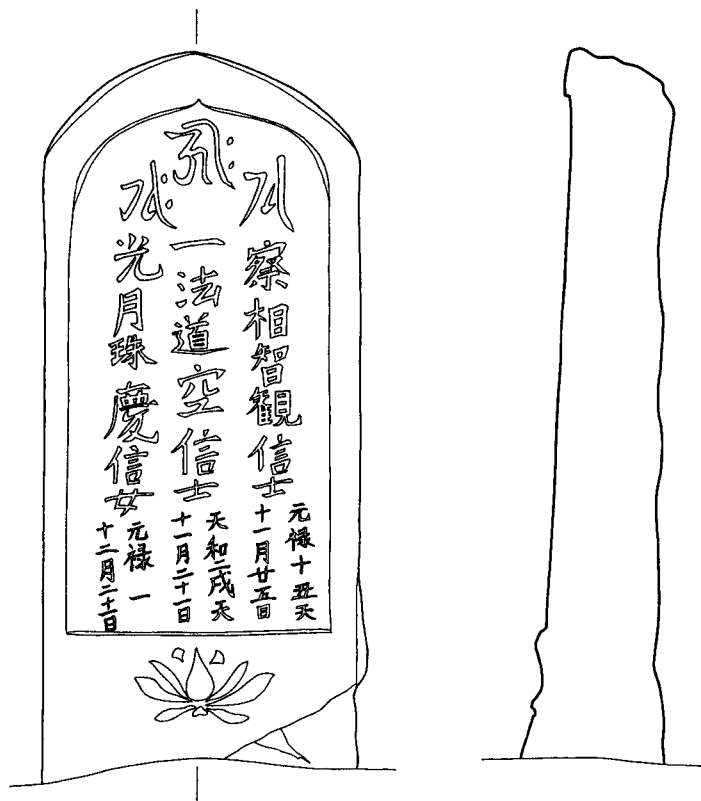 𑖭
察相智観信士
元禄十丑天
十一月廿五日
𑖮𑖿𑖨𑖱𑖾
一法道空信士
天和二戌天
十一月二十一日
𑖭𑖾
光月珠慶信女
元禄一
十二月二十一日